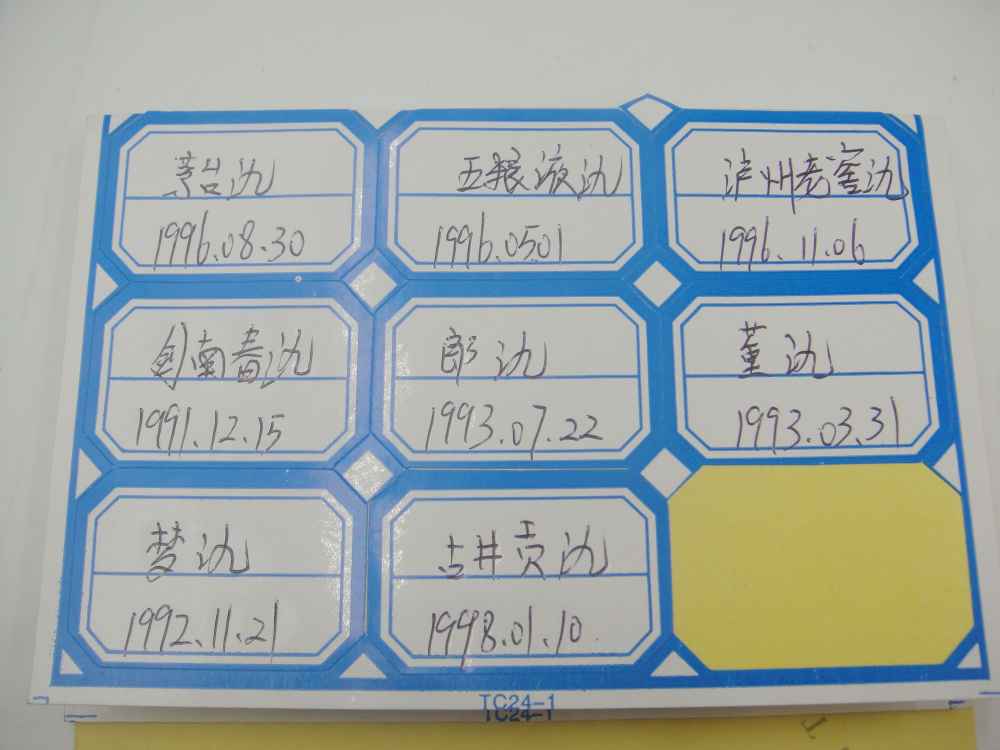 茅台氿
1996.08.30
五粮液氿
1996.0501
泸州老窖氿
1996.11.06
剑南春氿
1991.12.15
郎氿
1993.07.22
董氿
1993.03.31
梦氿
1992.11.21
古井贡氿
1998.01.10
TC24-1
TC24-1